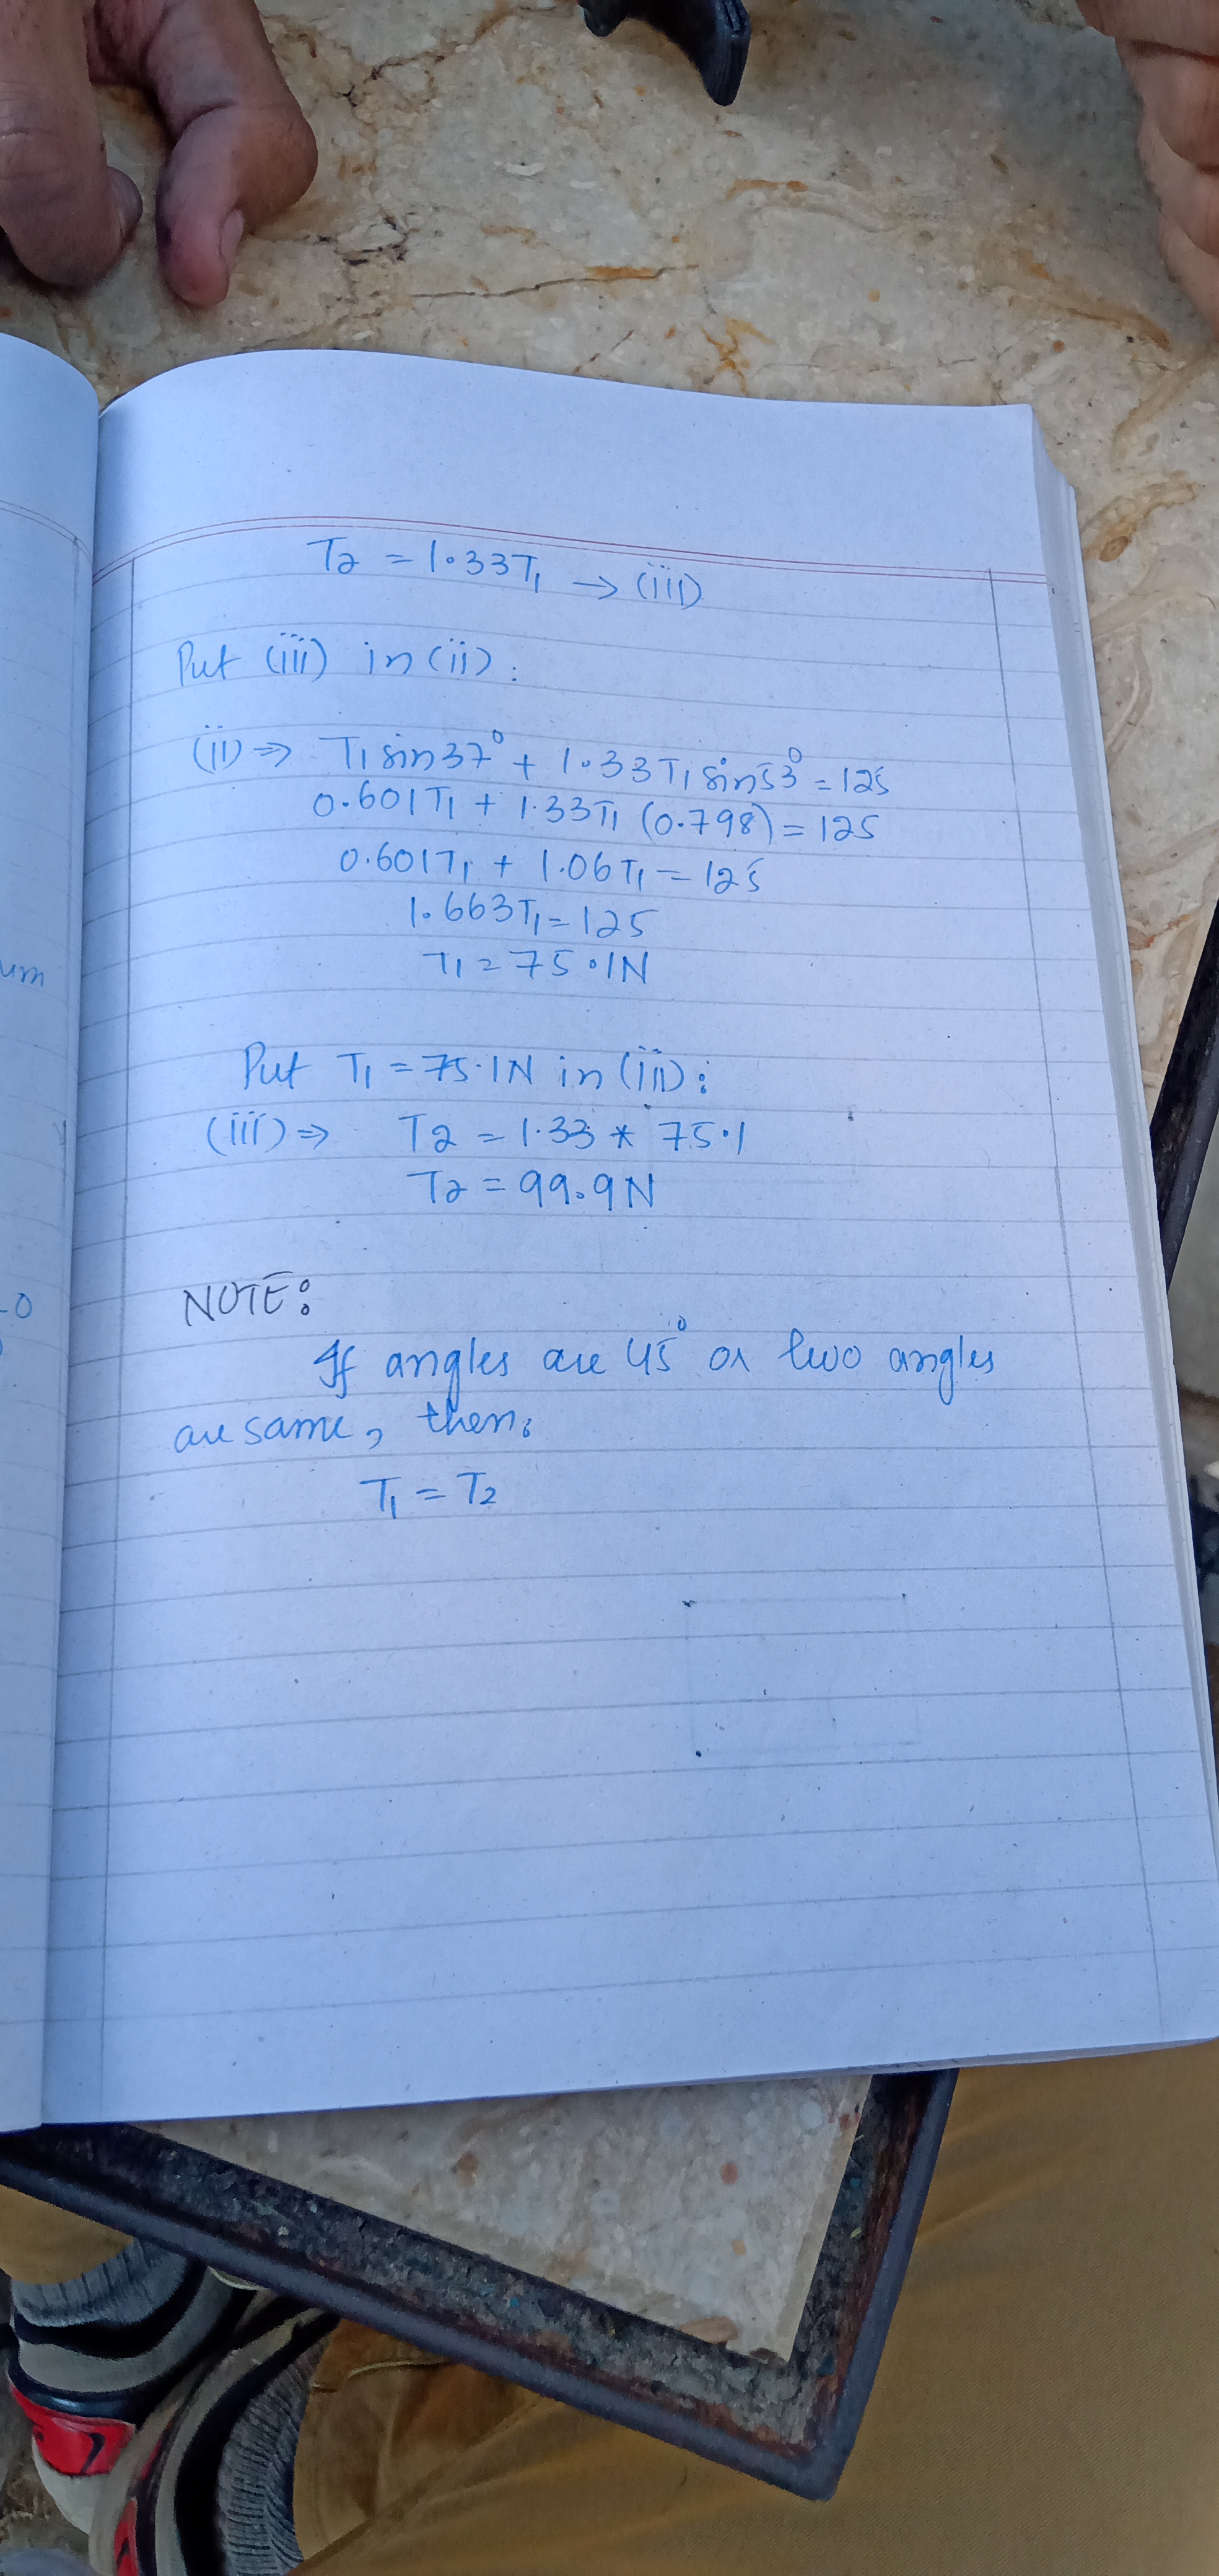 T2 = 1.33T1 → (iii)
Put (iii) in (ii):
(ii) ⇒ T1 sin37° + 1.33T1 sin53° = 125
0.601T1 + 1.33T1 (0.798) = 125
0.601T1 + 1.06T1 = 125
1.663T1 = 125
T1 = 75.1N
Put T1 = 75.1N in (iii):
(iii) ⇒ T2 = 1.33 * 75.1
T2 = 99.9N
NOTE:
If angles are 45° or two angles
are same, then:
T1 = T2
um
-0